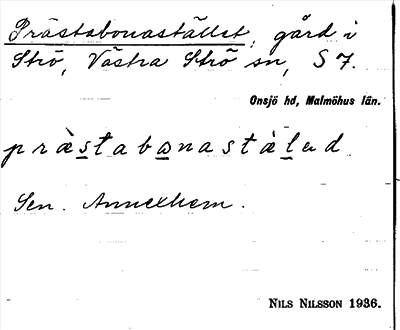 Prästabonastället, gård i
Strö, Västra Strö sn, S 7.
Onsjö hd, Malmöhus län.
præ̀stabonastæ̀led
Sen. Annexhem.
NILS NILSSON 1936.